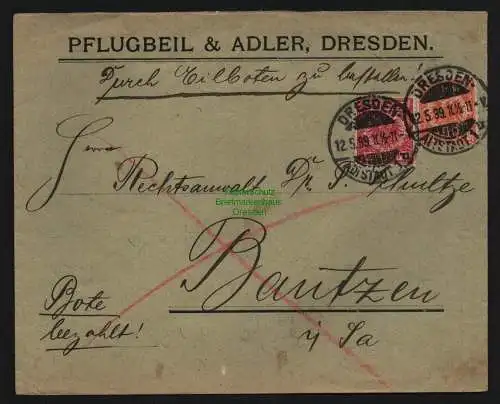 PFLUGBEIL & ADLER, DRESDEN.
Durch Eilboten zu bestellen!
DRESDEN-
12.5.99.11½-11-V.
ALTSTADT 1a
DRESDEN-
12.5.99.11½-11-V.
ALTSTADT 1a
Herrn
Rechtsanwalt Dr. Schultze
Briefmarkenhaus
Dresden
Bautzen
i/ Sa
Bote
bezahlt!